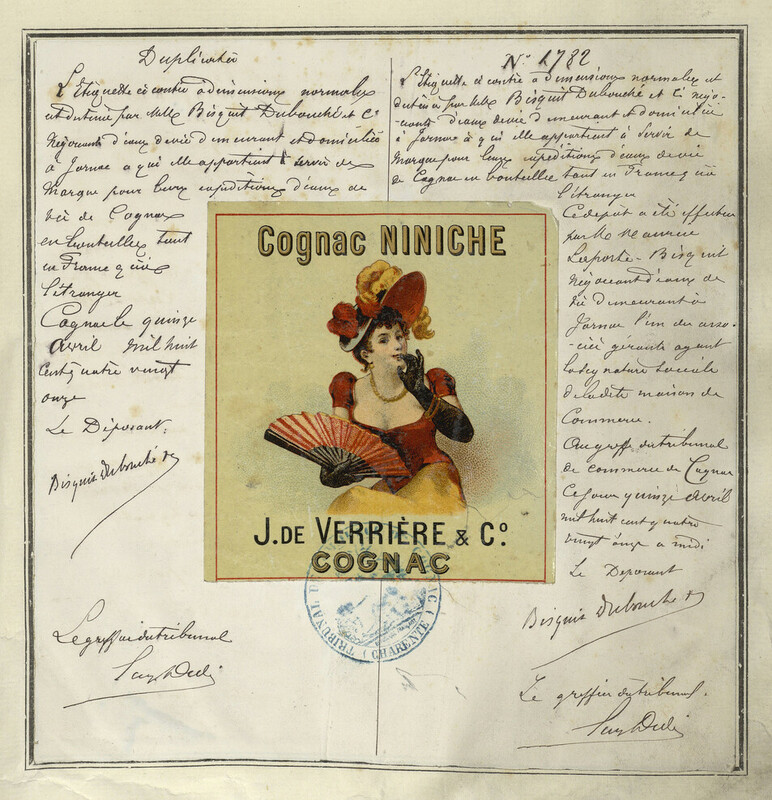 Duplicata
L'Etiquette ci contre à dimensions normales
est détenue par MM Bisquit Dubouché et Cie
Négociants d'eaux de vie demeurant et domiciliés
à Jarnac à qui elle appartient à servir de
Marque pour leurs expéditions d'eaux de
vie de Cognac
en bouteilles tant
en France qu'à
l'étranger
Cognac le quinze
avril mil huit
cent quatre vingt
onze
Le Déposant.
Bisquit Dubouché
Le greffier du tribunal
N° 1782
L'Etiquette ci contre à dimensions normales est
détenue par MM Bisquit Dubouché et Cie négo-
ciants d'eaux de vie demeurant et domiciliés
à Jarnac à qui elle appartient à servir de
Marque pour leurs expéditions d'eaux de vie
de Cognac en bouteilles tant en France qu'à
l'étranger
Ce dépôt a été effectué
par M. Maurice
Laporte-Bisquit
négociant d'eaux de
vie demeurant à
Jarnac l'un des asso-
ciés gérants ayant
la signature sociale
de la dite maison de
Commerce.
Au greffe du tribunal
de commerce de Cognac
Ce jour quinze avril
mil huit cent quatre
vingt onze à midi
Le Déposant
Bisquit Dubouché
Le greffier du tribunal.
Cognac NINICHE
J. DE VERRIÈRE & Cº
COGNAC
TRIBUNAL (CHARENTE)